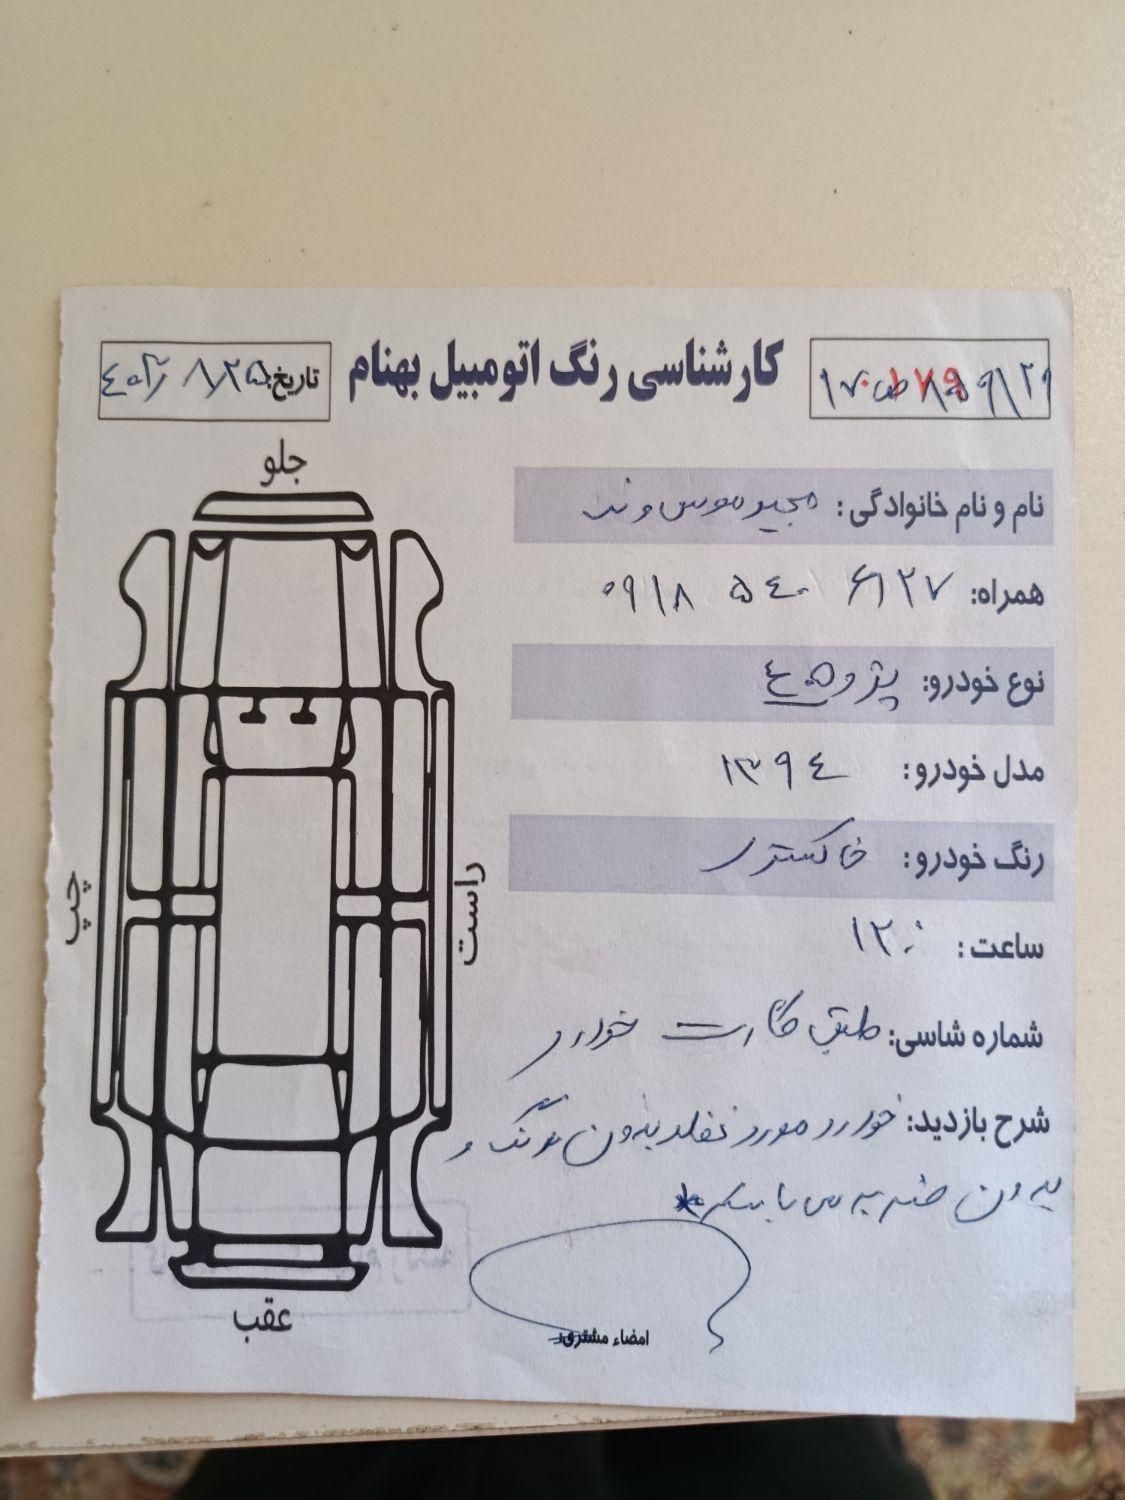 کارشناسی رنگ اتومبیل بهنام
تاریخ:
جلو
نام و نام خانوادگی: مجید موسی وند
همراه: ۰۹۱۸ ۵۴۰ ۶۱۲۷
نوع خودرو: پژو ۴۰۵
مدل خودرو: ۱۳۹۴
رنگ خودرو: خاکستری
چپ
راست
ساعت: ۱۲:۰
شماره شاسی: طبق کارت خودرو
شرح بازدید: خودرو مورد نظر بدون رنگ و
بدون ضربه می باشد
عقب
امضاء مشتری: